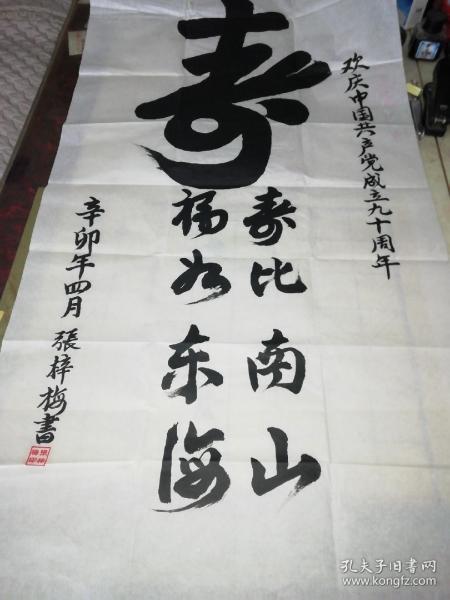 欢庆中国共产党成立九十周年
寿
寿比南山
福如东海
辛卯年四月 張梓梅書
孔夫子旧书网
www.kongfz.com